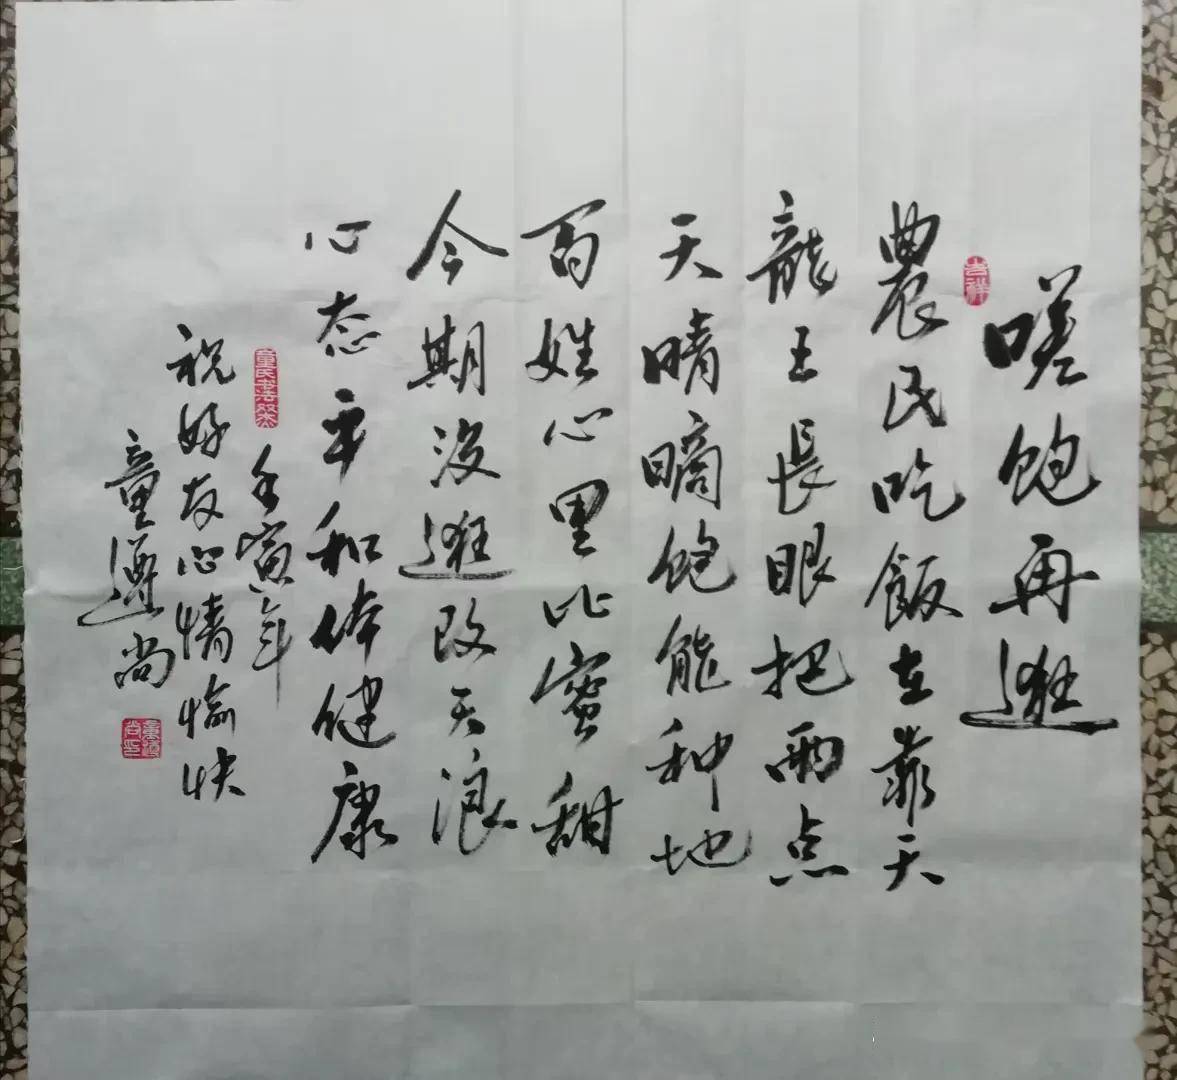 嗟饱再逛
吉祥
農民吃飯在靠天
龍王長眼把雨点
天晴暪饱能种地
百姓心里比蜜甜
今期没逛改天浪
心态平和体健康
壬寅年
祝好友心情愉快
童遵尚